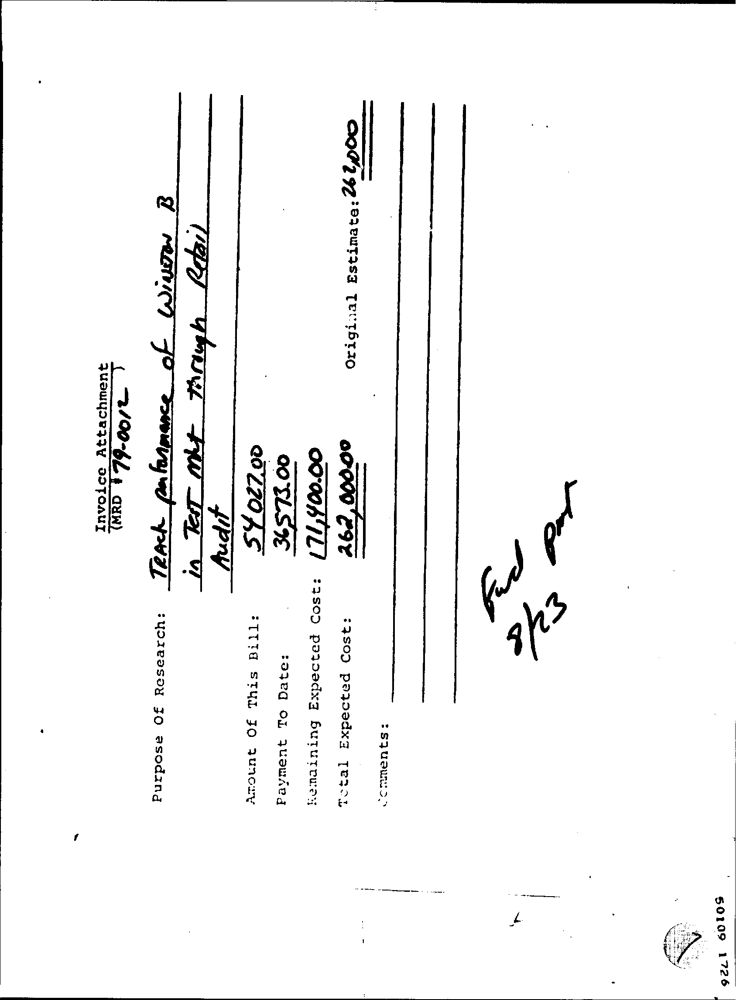 Invoice Attachment
(MRD # 79-0012)
Purpose Of Research: Track performance of Winston B
in Test Mkt through Retail
Audit
Amount Of This Bill: 54 027.00
Payment To Date: 36,573.00
Remaining Expected Cost: 171,400.00
Total Expected Cost: 262,000.00 Original Estimate: 262,000
Comments:
Fwd
8/23
50109 1726